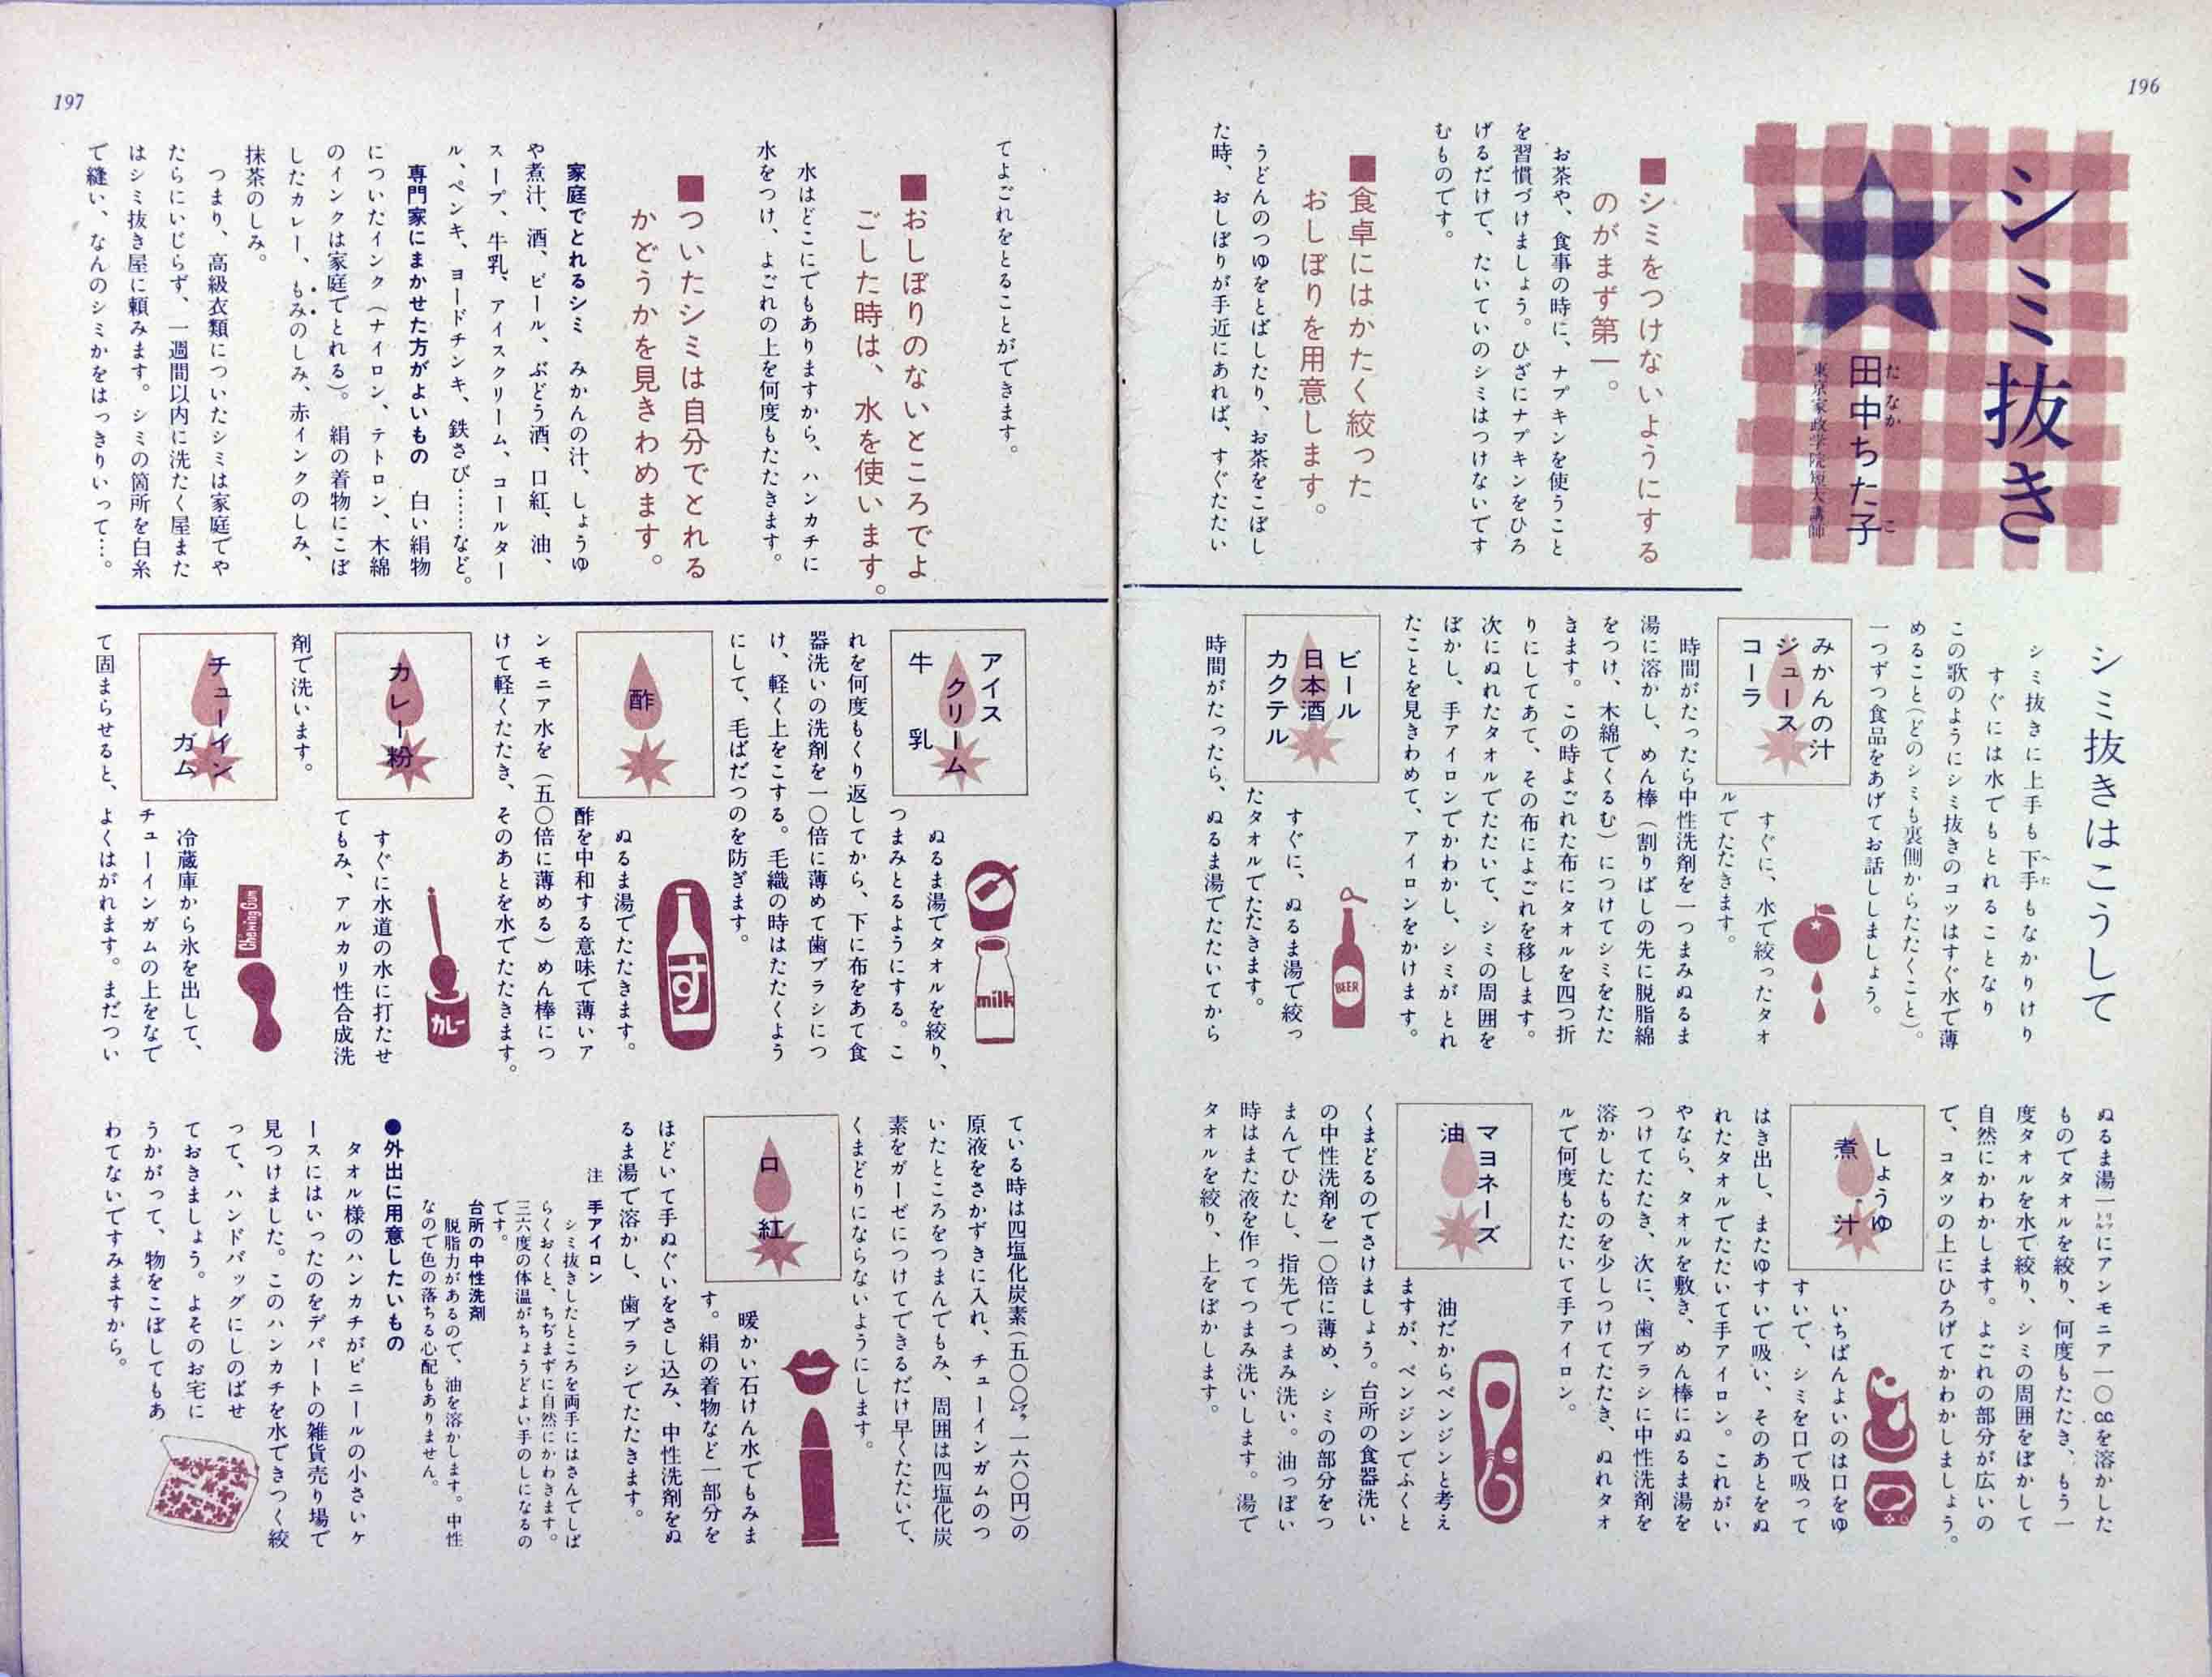 196
シミ抜き
田中ちた子
たなか こ
東京家政学院短大講師
■シミをつけないようにする
のがまず第一。
お茶や、食事の時に、ナプキンを使うこと
を習慣づけましょう。ひざにナプキンをひろ
げるだけで、たいていのシミはつけないです
むものです。
■食卓にはかたく絞った
おしぼりを用意します。
うどんのつゆをとばしたり、お茶をこぼし
た時、おしぼりが手近にあれば、すぐたたい
てよごれをとることができます。
■おしぼりのないところでよ
ごした時は、水を使います。
水はどこにでもありますから、ハンカチに
水をつけ、よごれの上を何度もたたきます。
■ついたシミは自分でとれる
かどうかを見きわめます。
家庭でとれるシミ みかんの汁、しょうゆ
や煮汁、酒、ビール、ぶどう酒、口紅、油、
スープ、牛乳、アイスクリーム、コールター
ル、ペンキ、ヨードチンキ、鉄さび……など。
専門家にまかせた方がよいもの 白い絹物
についたインク（ナイロン、テトロン、木綿
のインクは家庭でとれる）。絹の着物にこぼ
したカレー、もみのしみ、赤インクのしみ、
抹茶のしみ。
つまり、高級衣類についたシミは家庭でや
たらにいじらず、一週間以内に洗たく屋また
はシミ抜き屋に頼みます。シミの箇所を白糸
で縫い、なんのシミかをはっきりいって…。
シミ抜きはこうして
シミ抜きに上手も下手もなかりけり
へた
すぐには水でもとれることなり
この歌のようにシミ抜きのコツはすぐ水で薄
めること（どのシミも裏側からたたくこと）。
一つずつ食品をあげてお話ししましょう。
みかんの汁
ジュース
コーラ
すぐに、水で絞ったタオ
ルでたたきます。
時間がたったら中性洗剤を一つまみぬるま
湯に溶かし、めん棒（割りばしの先に脱脂綿
をつけ、木綿でくるむ）につけてシミをたた
きます。この時よごれた布にタオルを四つ折
りにしてあて、その布によごれを移します。
次にぬれたタオルでたたいて、シミの周囲を
ぼかし、手アイロンでかわかし、シミがとれ
たことを見きわめて、アイロンをかけます。
ビール
日本酒
カクテル
BEER
すぐに、ぬるま湯で絞っ
たタオルでたたきます。
時間がたったら、ぬるま湯でたたいてから
ぬるま湯一リットルにアンモニア一〇ccを溶かした
ものでタオルを絞り、何度もたたき、もう一
度タオルを水で絞り、シミの周囲をぼかして
自然にかわかします。よごれの部分が広いの
で、コタツの上にひろげてかわかしましょう。
しょうゆ
煮汁
いちばんよいのは口をゆ
すいで、シミを口で吸って
はき出し、またゆすいで吸い、そのあとをぬ
れたタオルでたたいて手アイロン。これがい
やなら、タオルを敷き、めん棒にぬるま湯を
つけてたたき、次に、歯ブラシに中性洗剤を
溶かしたものを少しつけてたたき、ぬれタオ
ルで何度もたたいて手アイロン。
マヨネーズ
油
油だからベンジンと考え
ますが、ベンジンでふくと
くまどるのでさけましょう。台所の食器洗い
の中性洗剤を一〇倍に薄め、シミの部分をつ
まんでひたし、指先でつまみ洗い。油っぽい
時はまた液を作ってつまみ洗いします。湯で
タオルを絞り、上をぼかします。
197
アイス
クリーム
牛乳
milk
ぬるま湯でタオルを絞り、
つまみとるようにする。こ
れを何度もくり返してから、下に布をあて食
器洗いの洗剤を一〇倍に薄めて歯ブラシにつ
け、軽く上をこする。毛織の時はたたくよう
にして、毛ばだつのを防ぎます。
酢
す
ぬるま湯でたたきます。
酢を中和する意味で薄いア
ンモニア水を（五〇倍に薄める）めん棒につ
けて軽くたたき、そのあとを水でたたきます。
カレー粉
カレー
すぐに水道の水に打たせ
てもみ、アルカリ性合成洗
剤で洗います。
チューイン
ガム
Chewing Gum
冷蔵庫から氷を出して、
チューインガムの上をなで
て固まらせると、よくはがれます。まだつい
ている時は四塩化炭素（五〇〇グラ一六〇円）の
原液をさかずきに入れ、チューインガムのつ
いたところをつまんでもみ、周囲は四塩化炭
素をガーゼにつけてできるだけ早くたたいて、
くまどりにならないようにします。
口紅
暖かい石けん水でもみま
す。絹の着物など一部分を
ほどいて手ぬぐいをさし込み、中性洗剤をぬ
るま湯で溶かし、歯ブラシでたたきます。
注 手アイロン
シミ抜きしたところを両手にはさんでしば
らくおくと、ちぢまずに自然にかわきます。
三六度の体温がちょうどよい手のしになるの
です。
台所の中性洗剤
脱脂力があるので、油を溶かします。中性
なので色の落ちる心配もありません。
●外出に用意したいもの
タオル様のハンカチがビニールの小さいケ
ースにはいったのをデパートの雑貨売り場で
見つけました。このハンカチを水できつく絞
って、ハンドバッグにしのばせ
ておきましょう。よそのお宅に
うかがって、物をこぼしてもあ
わてないですみますから。